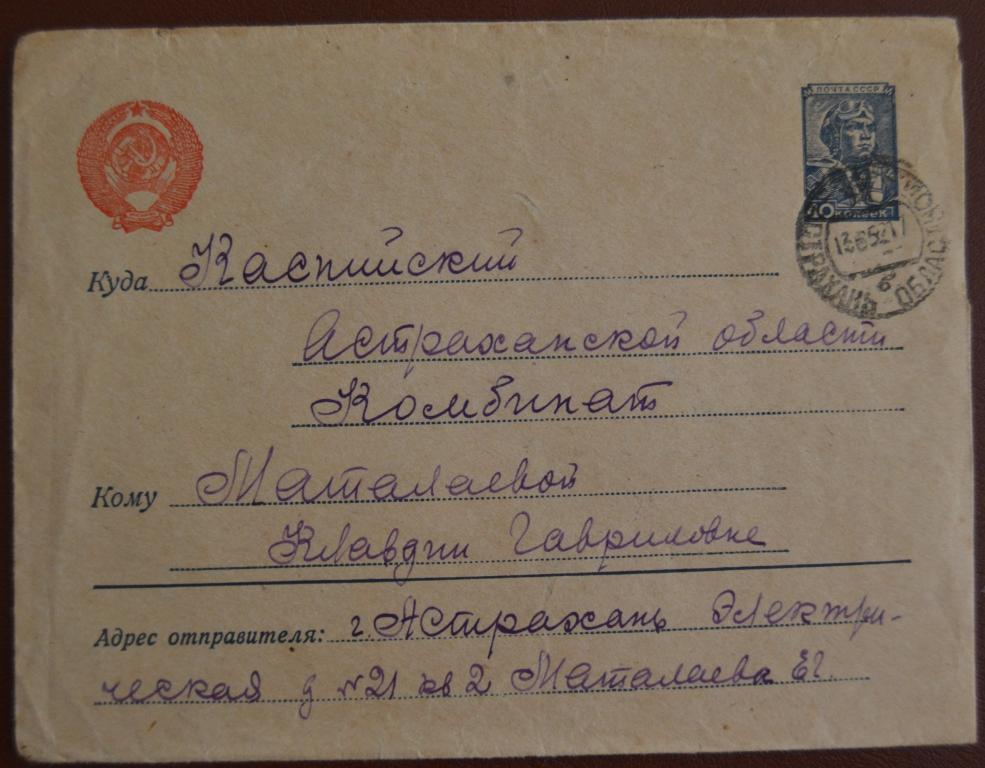 ПОЧТА СССР
40 КОПЕЕК
АСТРАХАНЬ ОБЛАС
13 6 52 17
б
Куда Каспийский
Астраханской области
Комбинат
Кому Маталаевой
Клавдии Гавриловне
Адрес отправителя: г. Астрахань Электри-
ческая д №21 кв 2 Маталаева Е.Г.